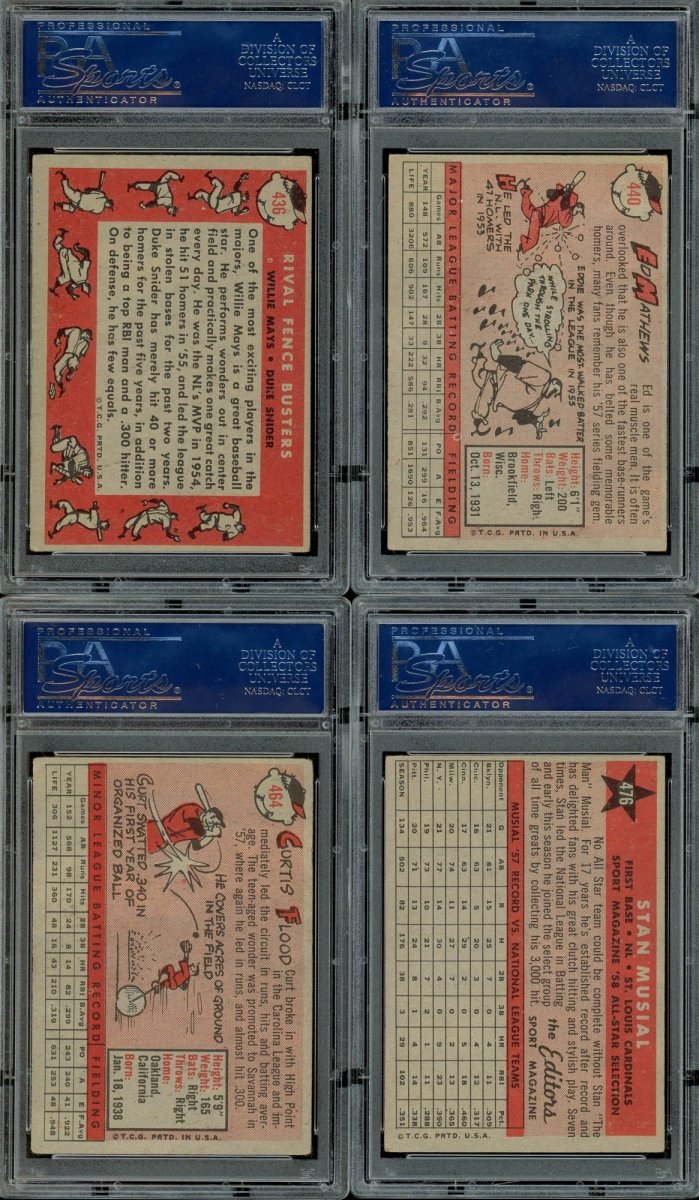 PROFESSIONAL
PSA
Sports®
AUTHENTICATOR
A
DIVISION OF
COLLECTORS
UNIVERSE
NASDAQ: CLCT
436
RIVAL FENCE BUSTERS
WILLIE MAYS • DUKE SNIDER
One of the most exciting players in the
majors, Willie Mays is a great baseball
star. He performs wonders out in center
field and practically makes one great catch
every day. He was the NL's MVP in 1954,
he hit 51 homers in '55, and led the league
in stolen bases for the past two years.
Duke Snider has merely hit 40 or more
homers for the past five years, in addition
to being a top RBI man and a .300 hitter.
On defense, he has few equals.
©T.C.G. PRTD. U.S.A.
PROFESSIONAL
PSA
Sports®
AUTHENTICATOR
A
DIVISION OF
COLLECTORS
UNIVERSE
NASDAQ: CLCT
440
ED MATHEWS
Ed is one of the game's
real muscle men. It is often
overlooked that he is also one of the fastest base-runners
around. Even though he has belted some memorable
homers, many fans remember his '57 series fielding gem.
HE LED THE
N.L. WITH
47 HOMERS
IN 1953
EDDIE WAS THE MOST-WALKED BATTER
IN THE LEAGUE IN 1955
WHILE STROLLING
THROUGH THE
PARK ONE DAY!
Height: 6'1"
Weight: 200
Bats: Left
Throws: Right
Home:
Brookfield,
Wisc.
Born:
Oct. 13, 1931
MAJOR LEAGUE BATTING RECORD FIELDING
Games AB Runs Hits 2B 3B HR RBI B.Avg PO A E F.Avg
YEAR 148 572 109 167 28 9 32 94 .292 131 299 16 .964
LIFE 880 3206 606 902 147 33 222 586 .281 851 1690 126 .953
©T.C.G. PRTD. IN U.S.A.
PROFESSIONAL
PSA
Sports®
AUTHENTICATOR
A
DIVISION OF
COLLECTORS
UNIVERSE
NASDAQ: CLCT
464
CURTIS FLOOD
Curt broke in with High Point
in the Carolina League and im-
mediately led the circuit in runs, hits and batting aver-
age. The teen-aged wonder was promoted to Savannah in
'57, where again he led in runs, and almost hit .300
CURT SWATTED .340 IN
HIS FIRST YEAR OF
ORGANIZED BALL
HE COVERS ACRES OF GROUND
IN THE FIELD
Height: 5'9"
Weight: 165
Bats: Right
Throws: Right
Home:
Oakland,
California
Born:
Jan. 18, 1938
MINOR LEAGUE BATTING RECORD FIELDING
Games AB Runs Hits 2B 3B HR RBI B.Avg PO A E F.Avg
YEAR 152 568 98 170 24 8 14 82 .299 243 240 41 .922
LIFE 306 1127 231 360 48 16 43 210 .319 631 253 48 .948
©T.C.G. PRTD. U.S.A.
PROFESSIONAL
PSA
Sports®
AUTHENTICATOR
A
DIVISION OF
COLLECTORS
UNIVERSE
NASDAQ: CLCT
476
STAN MUSIAL
FIRST BASE • NL • ST. LOUIS CARDINALS
SPORT MAGAZINE '58 ALL-STAR SELECTION
No All Star team could be complete without Stan "The
Man" Musial. For 17 years he's established record after record and
has delighted fans with his great clutch hitting and stylish play. Seven
times, Stan led the National League in Batting
and early this season he joined the select group
of all time greats by collecting his 3,000 hit.
the Editors
SPORT MAGAZINE
MUSIAL '57 RECORD VS. NATIONAL LEAGUE TEAMS
Opponent G AB R H 2B 3B HR RBI Pct.
SEASON 134 502 82 176 38 3 29 102 .351
©T.C.G. PRTD. U.S.A.